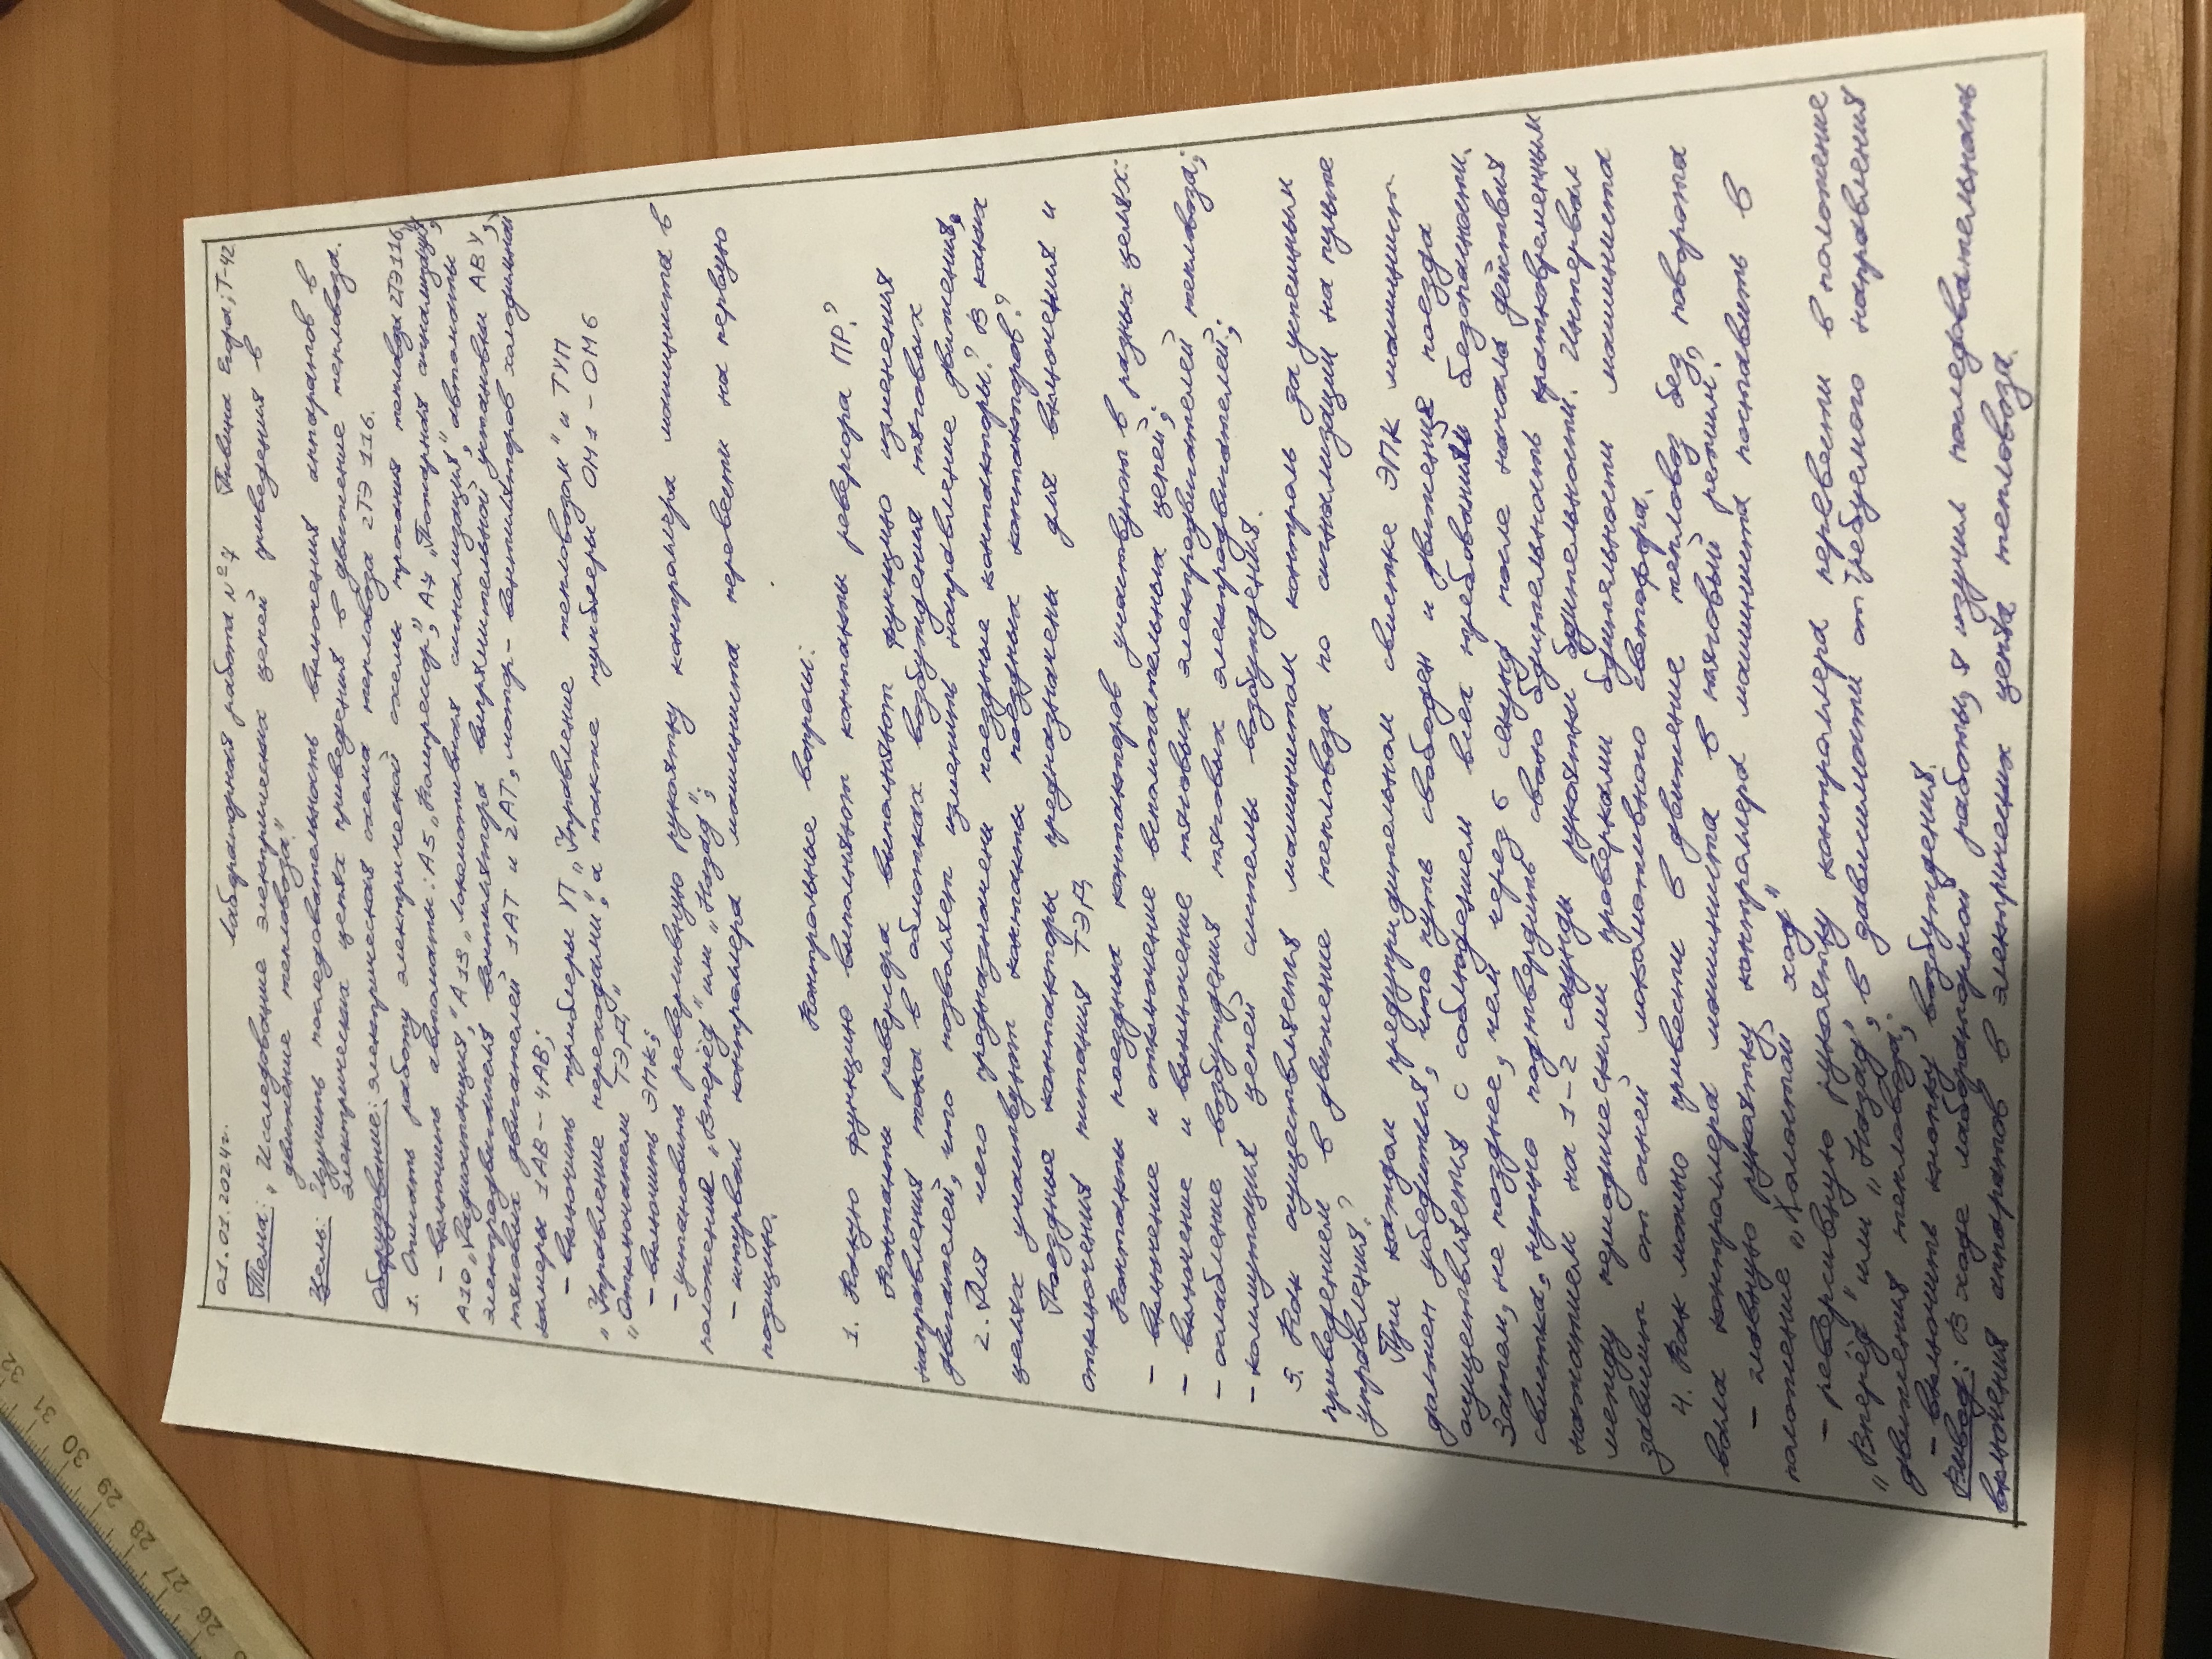 01.01.2024г. Лабораторная работа №7 Пивина Егора; Т-42
Тема: „Исследование электрических цепей приведения в
движение тепловоза"
Цель: Изучить последовательность включения аппаратов в
электрических цепях приведения в движение тепловоза.
Оборудование: электрическая схема тепловоза 2ТЭ116.
1. Описать работу электрической схемы трогания тепловоза 2ТЭ116
- включить автоматы: А5 „Компрессор", А4 „Пожарная сигнализация",
А10 „Радиостанция", А13 „Локомотивная сигнализация", автоматы
электродвигателя вентилятора выпрямительной установки АВУ,
тяговых двигателей 1АТ и 2АТ, мотор-вентиляторов холодильной
камеры 1АВ - 4АВ;
- включить тумблеры УТ „Управление тепловозом" и ТУП
„Управление переходами", а также тумблеры ОМ1 - ОМ6
„Отключатели ТЭД"
- включить ЭПК;
- установить реверсивную рукоятку контроллера машиниста в
положение „Вперёд" или „Назад";
- штурвал контроллера машиниста перевести на первую
позицию.
Контрольные вопросы:
1. Какую функцию выполняют контакты реверсора ПР?
Контакты реверсора выполняют функцию изменения
направления тока в обмотках возбуждения тяговых
двигателей, что позволяет изменить направление движения.
2. Для чего предназначены поездные контакторы? В каких
целях участвуют контакты поездных контакторов?
Поездные контакторы предназначены для включения и
отключения питания ТЭД
Контакты поездных контакторов участвуют в разных целях:
- включение и отключение вспомогательных цепей;
- включение и выключение тяговых электродвигателей тепловоза;
- ослабление возбуждения тяговых электродвигателей;
- коммутация цепей системы возбуждения.
3. Как осуществляется машинистом контроль за успешным
приведением в движение тепловоза по сигнализации на пульте
управления?
При каждом предупредительном свистке ЭПК машинист
должен убедиться, что путь свободен и движение поезда
осуществляется с соблюдением всех требований безопасности.
Затем, не позднее, чем через 6 секунд после начала действия
свистка, нужно подтвердить свою бдительность кратковременным
нажатием на 1-2 секунды рукоятки бдительности. Интервал
между периодическими проверками бдительности машиниста
зависит от огней локомотивного светофора.
4. Как можно привести в движение тепловоз без поворота
вала контроллера машиниста в тяговый режим?
- главную рукоятку контроллера машиниста поставить в
положение „Холостой ход"
- реверсивную рукоятку контроллера перевести в положение
„Вперёд" или „Назад", в зависимости от требуемого направления
движения тепловоза;
- включить кнопку возбуждения.
Вывод: В ходе лабораторной работы, я изучил последовательность
включения аппаратов в электрических цепях тепловоза.